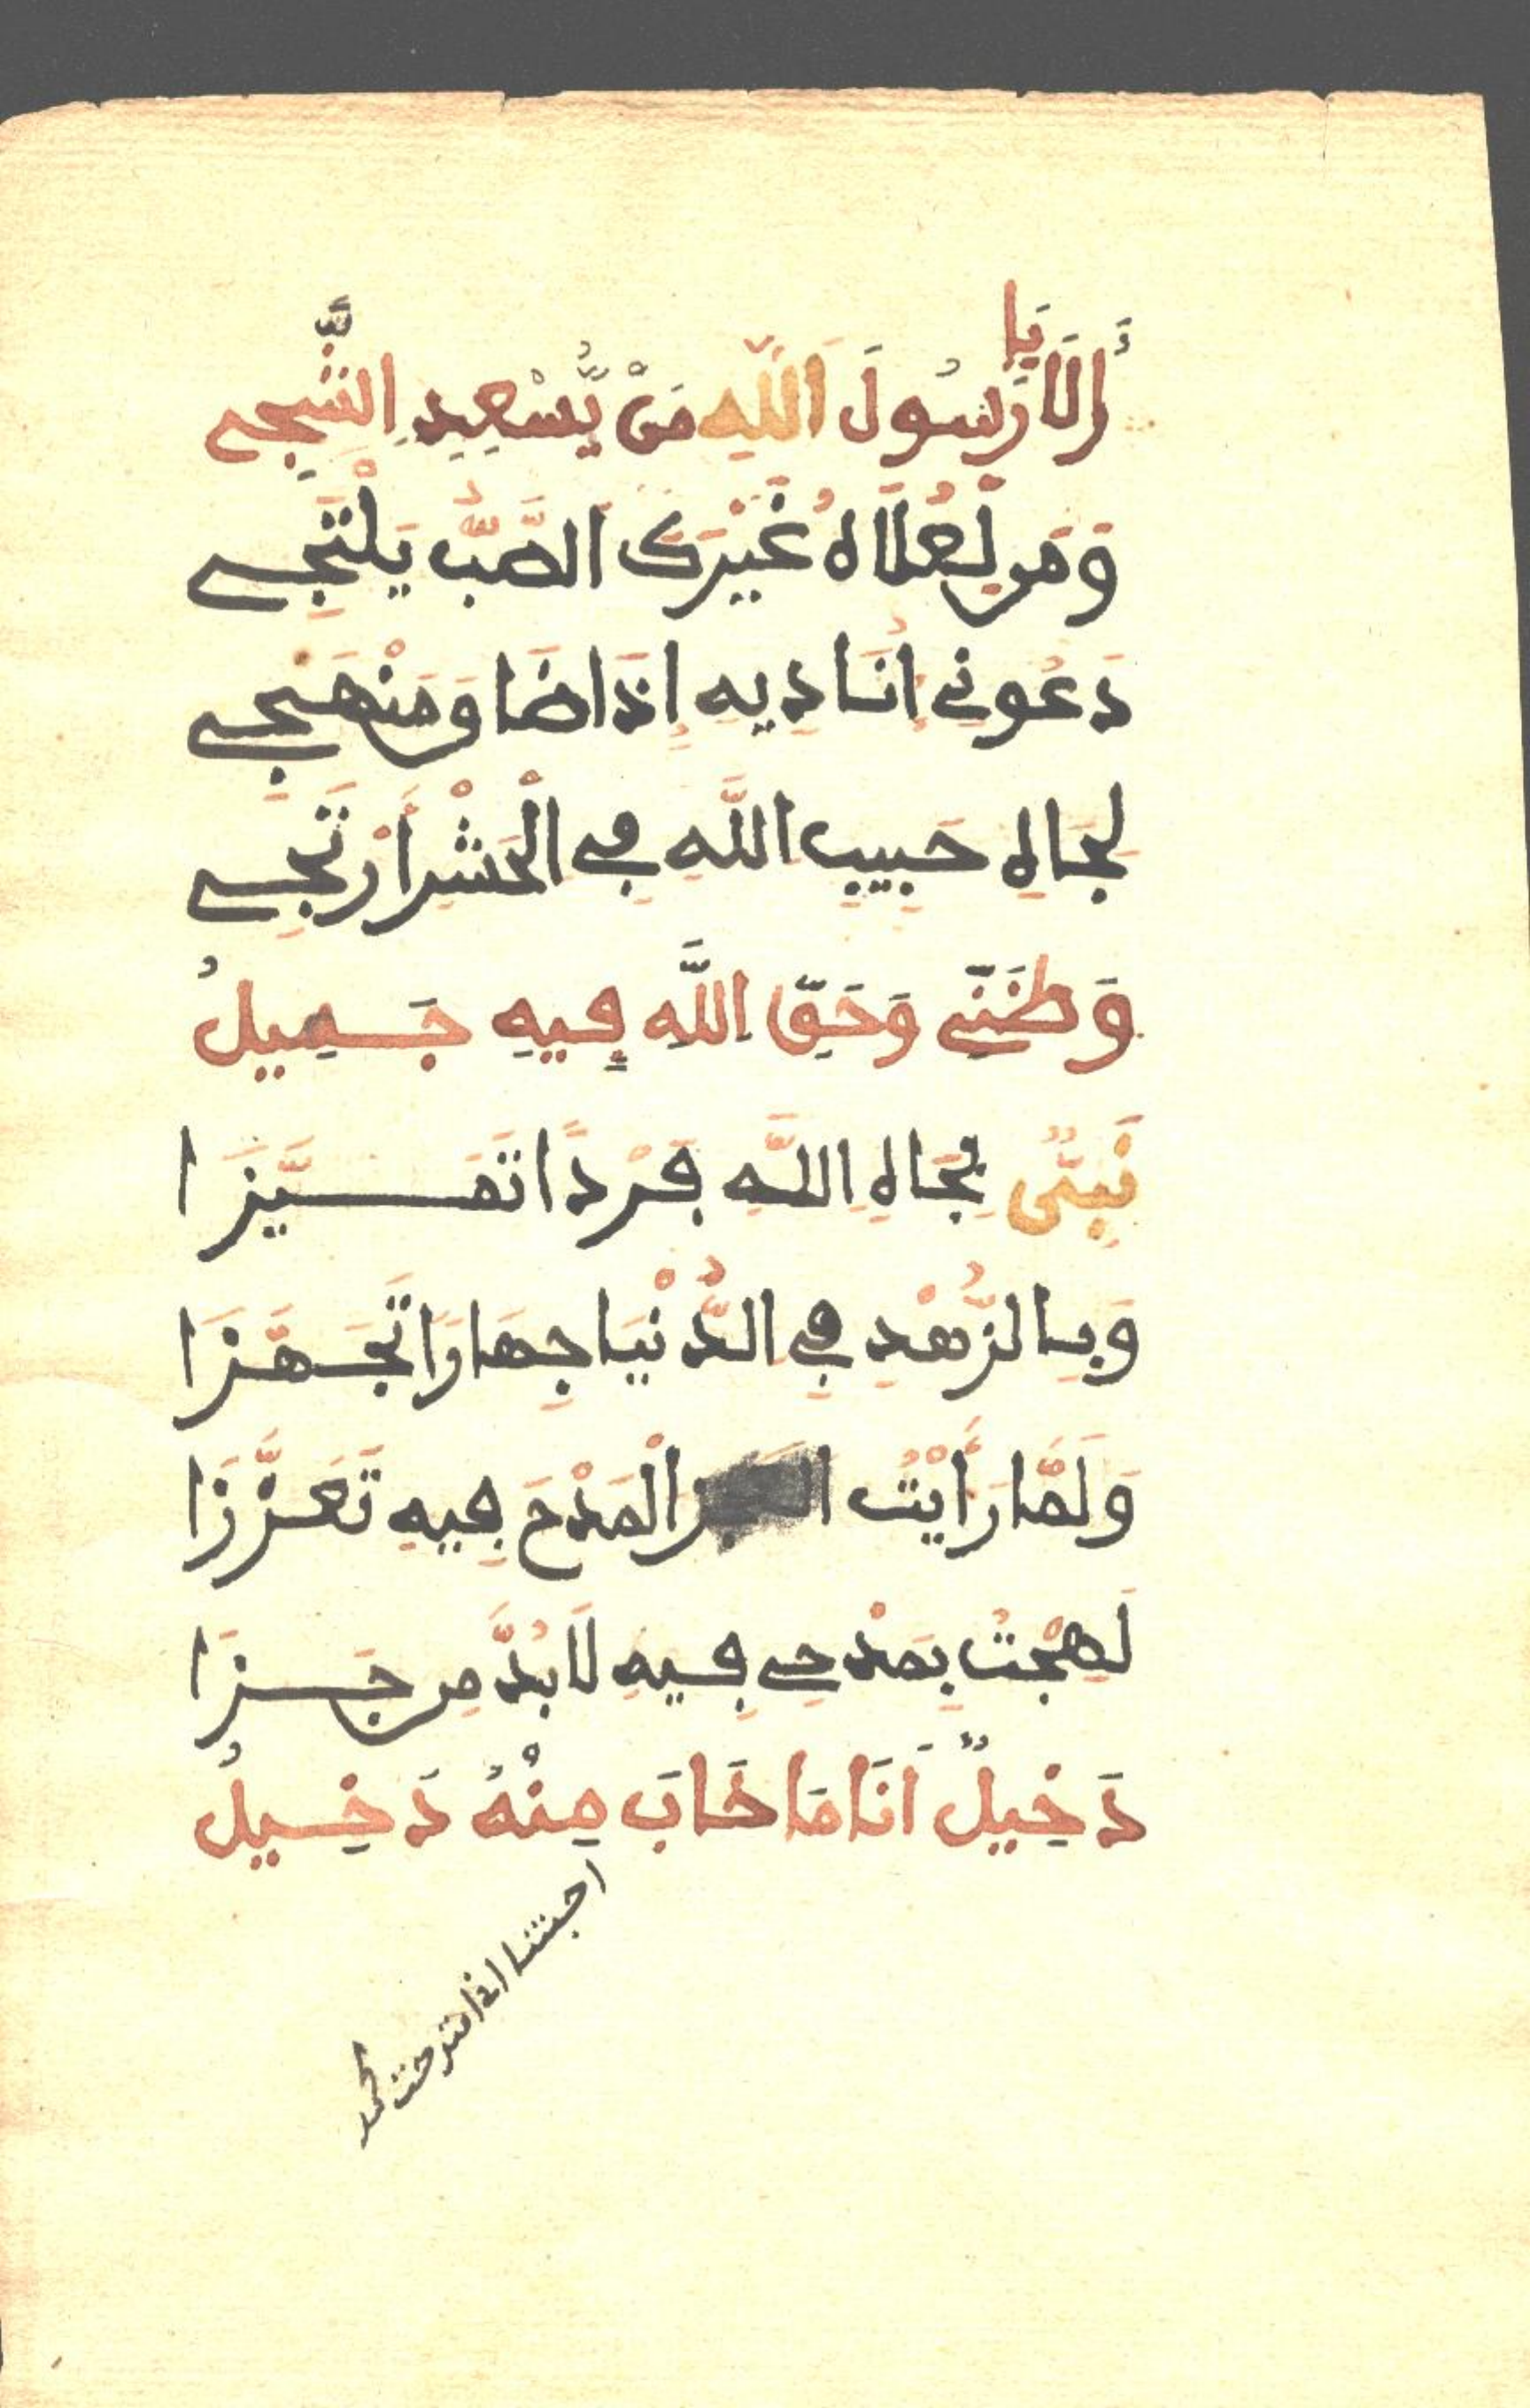 أَلَا يَا رَسُولَ اللَّهِ مَنْ يُّسْعِدِ الشَّجِي
وَمَن لِعُلَاهُ غَيْرَكَ الصَّبُّ يَلْتَجِي
دَعُونِي أُنَادِيهِ إِذَا ضَاقَ مَنْهَجِي
لِجَاهِ حَبِيبِ اللَّهِ فِي الْحَشْرِ أَرْتَجِي
وَظَنِّي وَحَقِّ اللَّهِ فِيهِ جَمِيلُ
نَبِيٌّ بِجَاهِ اللَّهِ فَرْدًا تَمَيَّزَا
وَبِالزُّهْدِ فِي الدُّنْيَا جِهَارًا تَجَهَّزَا
وَلَمَّا رَأَيْتُ الْمَدْحَ فِيهِ تَعَزَّزَا
لَهِجْتُ بِمَدْحِي فِيهِ لَابُدَّ مِن جَزَا
دَخِيلٌ أَنَا مَا خَابَ مِنْهُ دَخِيلُ